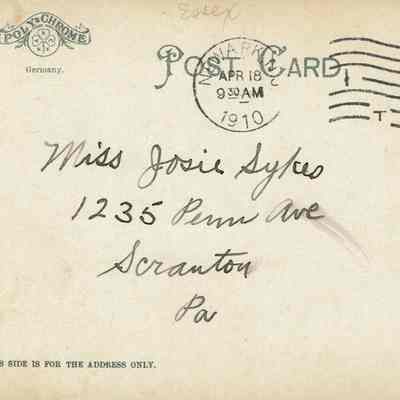 Essex
POLY-CHROME
Germany.
POST CARD
NEWARK
APR 18
9 30 AM
1910
T
Miss Josie Sykes
1235 Penn Ave
Scranton
Pa
S SIDE IS FOR THE ADDRESS ONLY.